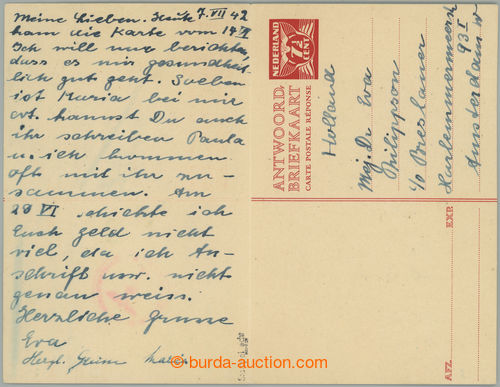 Meine Lieben. Heute 7.VII 42
kam die Karte vom 14.VI
Ich will nur berichten,
dass es mir gesundheit-
lich gut geht. Soeben
ist Maria bei mir
ev. kannst Du auch
ihr schreiben Paula
u. ich kommen
oft mit ihr zu-
sammen. Am
29 VI schickte ich
Euch Geld nicht
viel, da ich An-
schrift usw. nicht
genau weiss.
Herzliche Grüsse
Eva
Herzl. Grüsse
NEDERLAND
7½
CENT
ANTWOORD
BRIEFKAART
CARTE POSTALE RÉPONSE
Holland
Mej. Dr Eva
Philippson
c/o Breslauer
Haarlemmermeerstr
93 I
Amsterdam W
AFZ.
EXP.
burda-auction.com